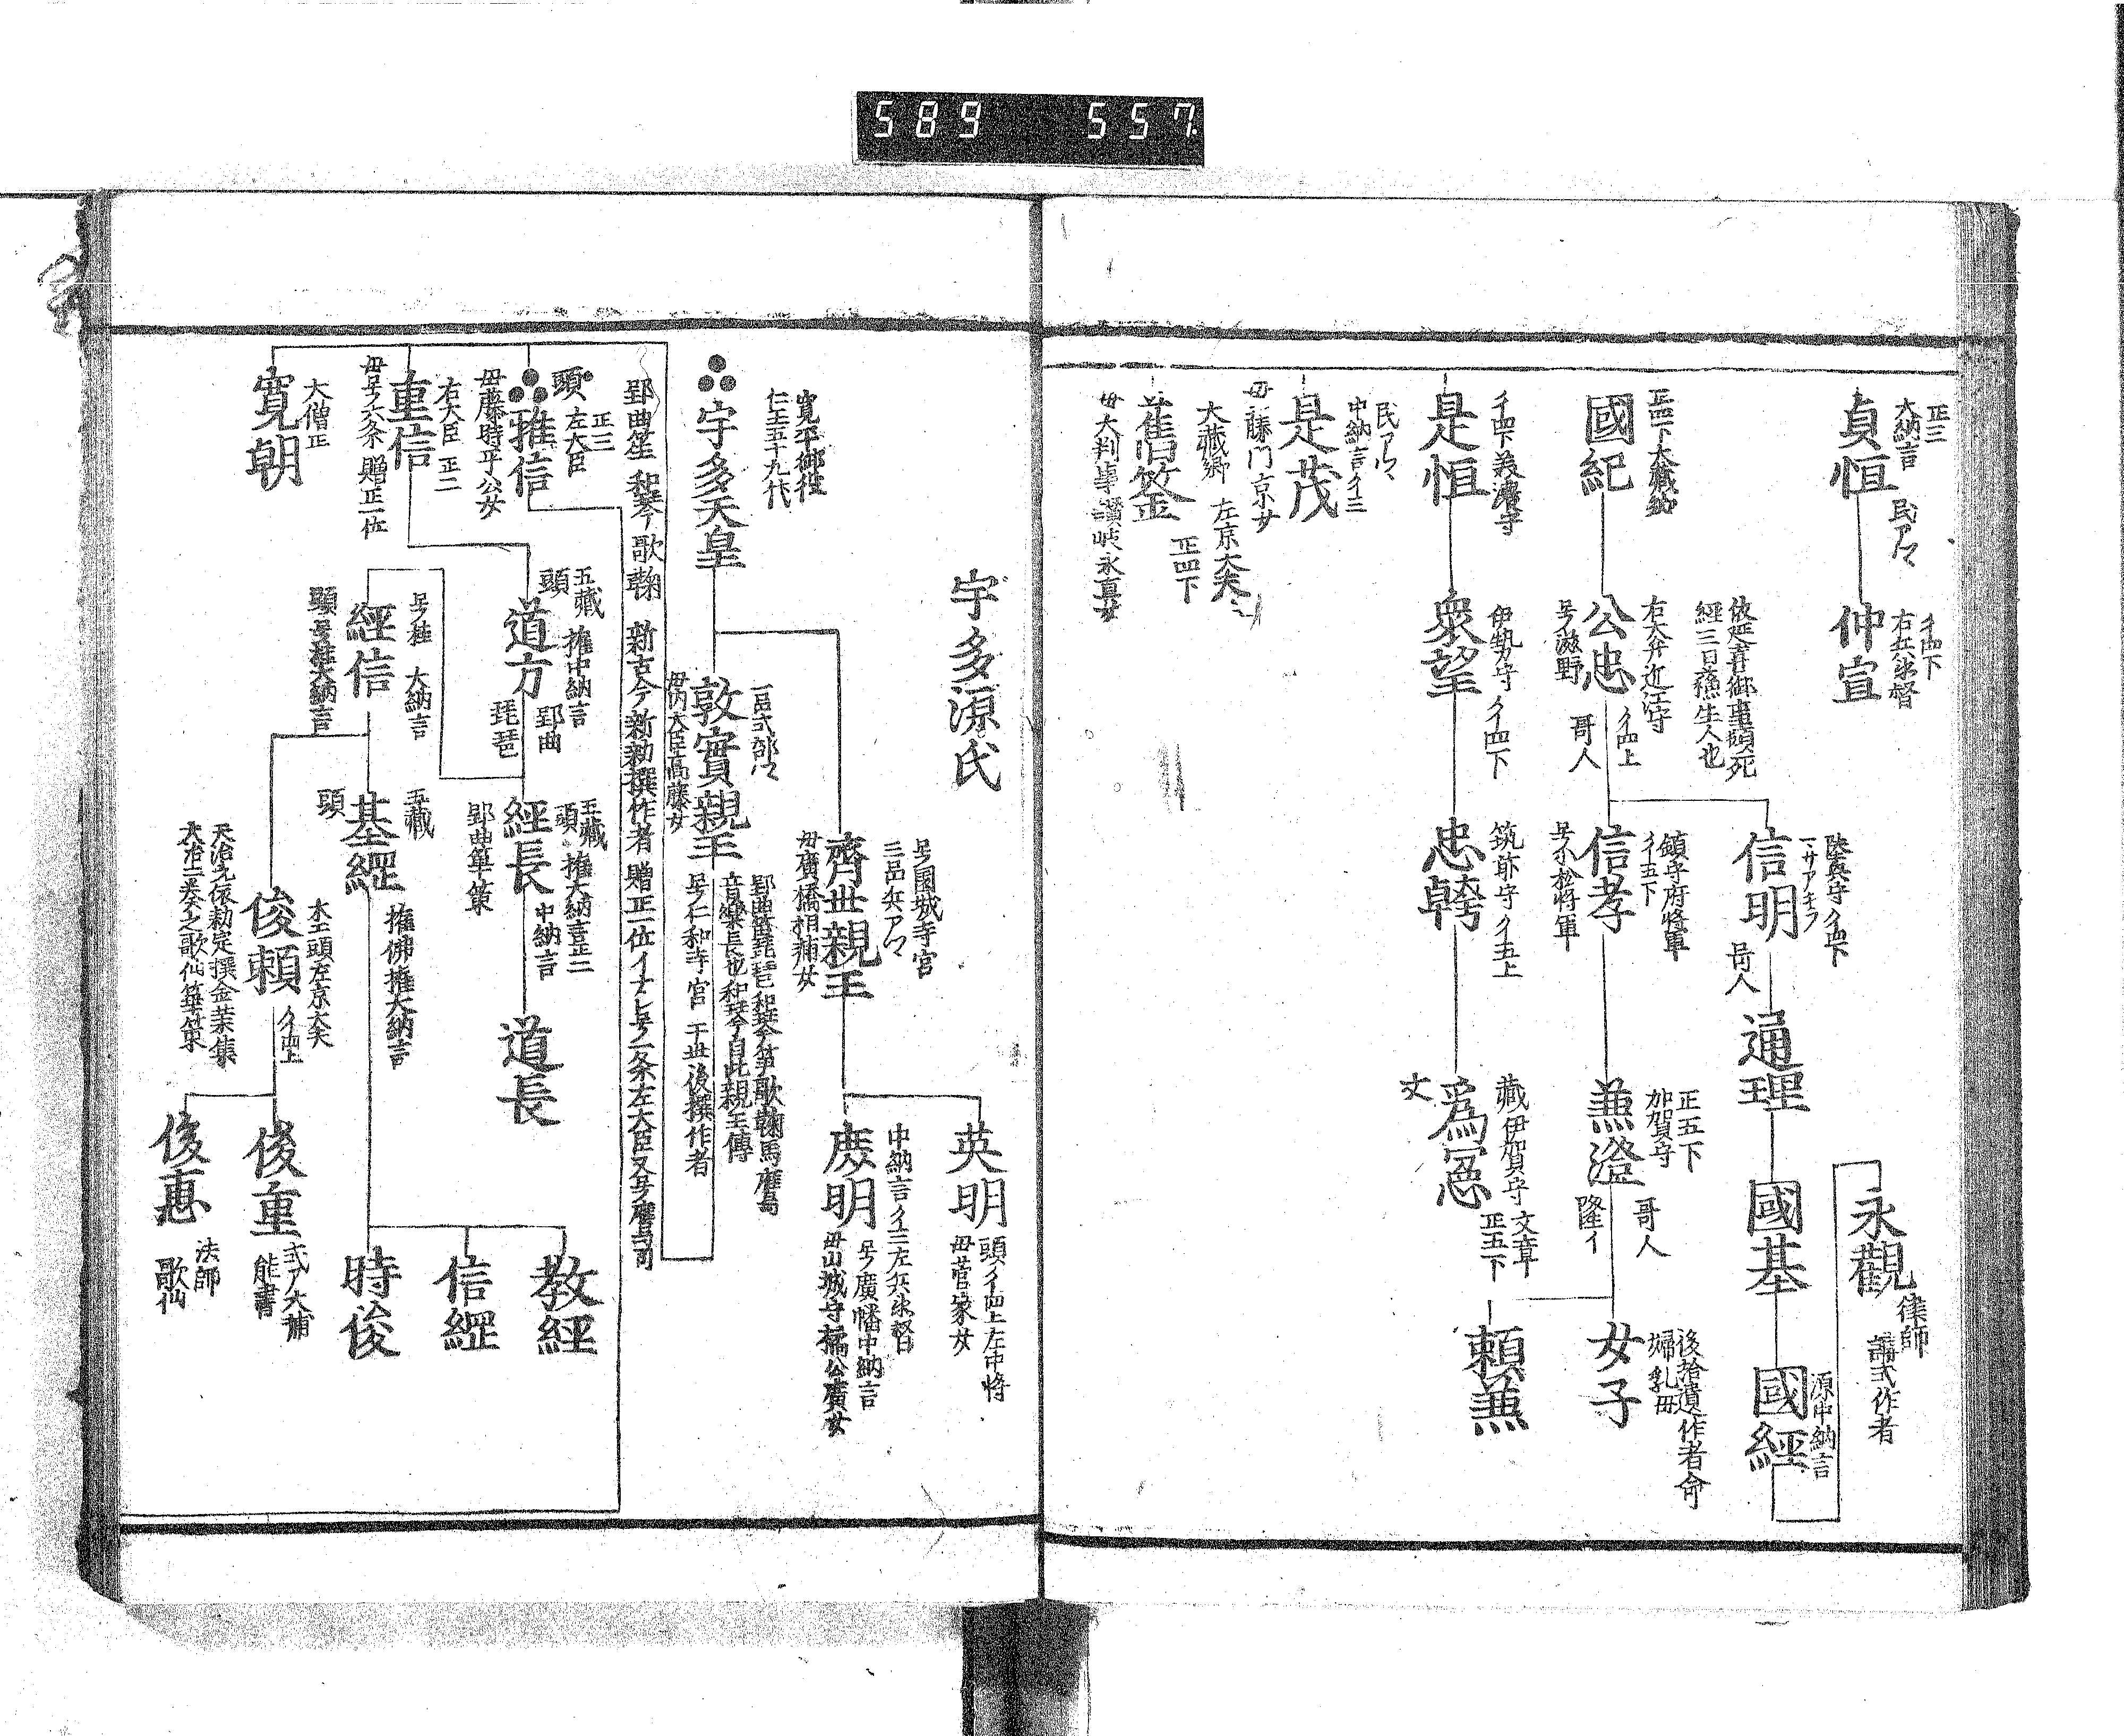 589 557
正三
大納言
貞恒
民ア々
従四下
右兵衛督
仲宣
正四下大蔵
國紀
依延喜御
経三日蘇生人也
右大弁近江守
公忠
号滋野
哥人
従四上
陸奥守従四下
サアキラ
信明
哥人
通理
國基
源中納言
國經
永觀
律師
講式作者
鎮守府将軍
従五下
信孝
号小松将軍
正五下
加賀守
兼澄
哥人
隆イ
後拾遺作者命
婦乳母
女子
頼兼
従四下美濃守
是恒
伊勢守従四下
衆望
筑前守従五上
忠幹
蔵伊賀守文章
為憲
正五下
文
民ア々
中納言従三
是茂
母藤門京女
大藏卿 左京大夫
舊鑒
正四下
母大判事讃岐永直女
宇多源氏
寛平御位
仁王五十九代
宇多天皇
号園城寺宮
三品兵ア々
齊世親王
母廣橋相補女
頭従四上左中将
英明
母菅家女
中納言従三左兵衛督
号廣幡中納言
庶明
母山城守橘公廣女
一品式部々
敦實親王
母内大臣高藤女
郢曲笛琵琶和琴箏歌鞠馬鷹鳥
音楽長也和琴自此親王傳
号仁和寺宮 千丗後撰作者
郢曲笙 和琴 歌鞠 新古今新勅撰作者 贈正一位イナシ号一条左大臣又号鷹司
正三
左大臣
頭
雅信
母藤時平公女
右大臣 正二
重信
母号六条 贈正一位
大僧正
寛朝
五藏 権中納言
頭
道方
郢曲
琵琶
五藏 権大納言正二
頭
經長
中納言
郢曲篳篥
道長
号桂 大納言
經信
頭 号桂大納言
五藏
頭
基經
権佛権大納言
教經
信經
時俊
木工頭左京大夫
俊頼
従四上
天治元依勅定撰金葉集
大治二奏之歌仙篳篥
俊重
式ア大輔
能書
俊惠
法師
歌仙